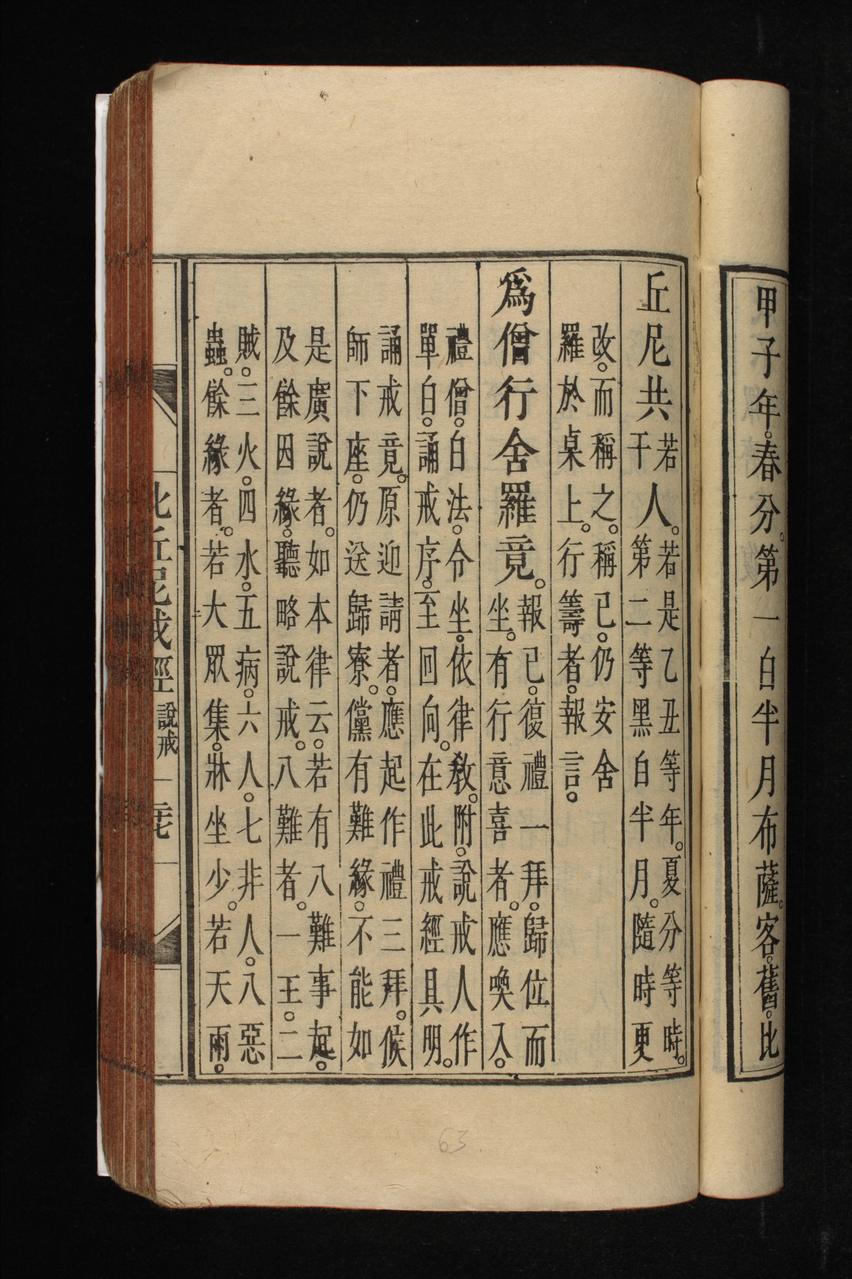 甲子年。春分。第一白半月布薩。客。舊。比
丘尼共若干人。若是乙丑等年。夏分等時。
第二等黑白半月。隨時更
改。而稱之。稱已。仍安舍
羅於桌上。行籌者。報言。
爲僧行舍羅竟。報已。復禮一拜。歸位而
坐。有行意喜者。應喚入。
禮僧。白法。令坐。依律教。附。說戒人作
單白。誦戒序。至回向。在此戒經具明。
誦戒竟。原迎請者。應起作禮三拜。候
師下座。仍送歸寮。儻有難緣。不能如
是廣說者。如本律云。若有八難事起。
及餘因緣。聽略說戒。八難者。一王。二
賊。三火。四水。五病。六人。七非人。八惡
蟲。餘緣者。若大眾集。牀坐少。若天雨。
比丘尼戒經 說戒
63